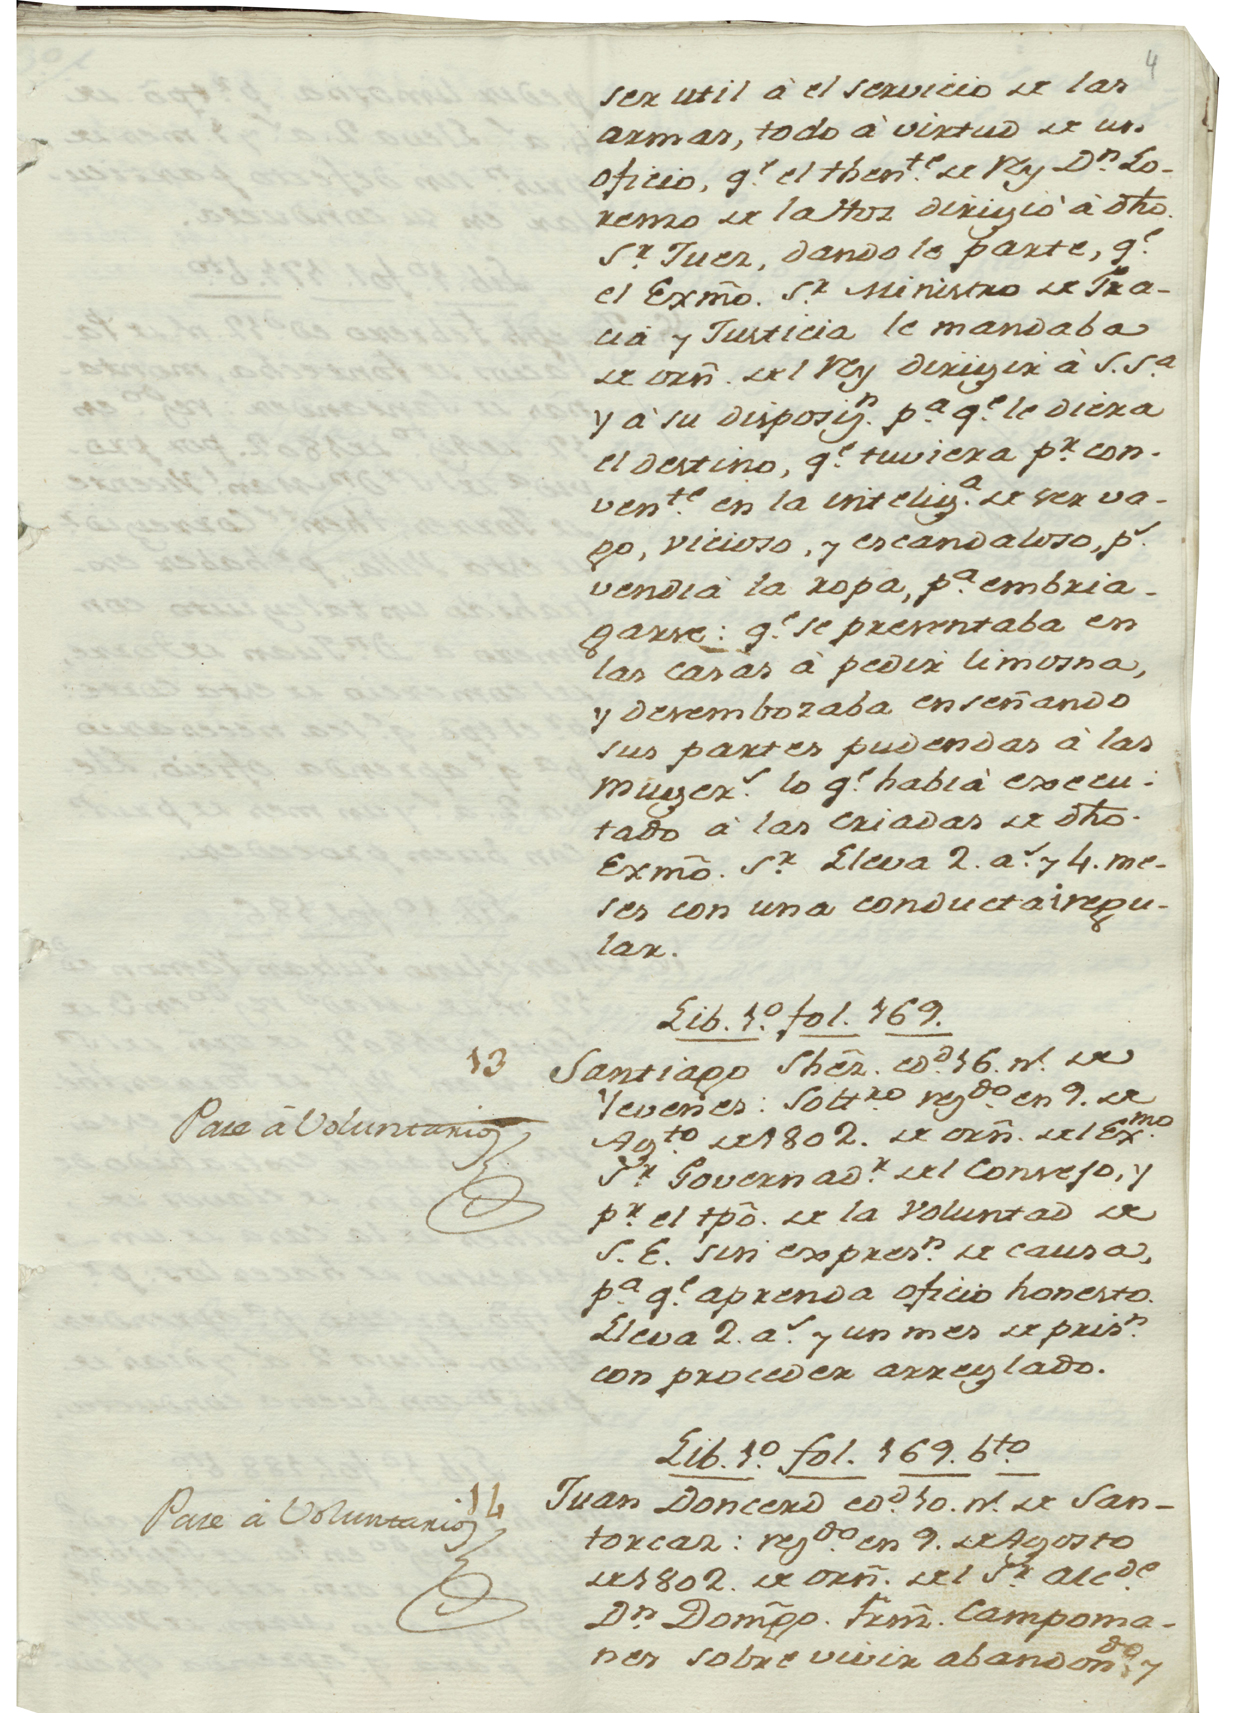 4
ser util à el servicio de las
armas, todo à virtud de un
oficio, q.e el then.te de Rey D.n Lo-
renzo de la Hoz dirigió à dho.
S.r Juez, dandole parte, q.e
el Exmõ. S.r Ministro de Gra-
cia y Justicia le mandaba
de orñ. del Rey dirigir à S.S.a
y à su disposiz.n p.a q.e le diera
el destino, q.e tuviera p.r con-
ven.te en la intelig.a de ser va-
go, vicioso, y escandaloso, p.s
vendia la ropa, p.a embria-
garse: q.e se presentaba en
las casas à pedir limosna,
y desembozaba enseñando
sus partes pudendas à las
muger.s lo q.e habia execu-
tado à las criadas de dho.
Exmõ. S.r Lleva 2. a.s y 4. me-
ses con una conducta iregu-
lar.
Lib. 1.o fol. 169.
13 Santiago Shēz. ed.d 16. n.l de
Yevenes: Solt.ro reg.do en 9. de
Pase à Voluntarios
Ag.to de 1802. de orñ. del Ex.mo
S.r Governad.r del Consejo, y
p.r el tpõ. de la Voluntad de
S. E. sin expres.n de causa,
p.a q.e aprenda oficio honesto.
Lleva 2. a.s y un mes de pris.n
con proceder arreglado.
Lib. 1.o fol. 169. b.to
14 Juan Doncerd ed.d 10. n.l de San-
Pase à Voluntarios
torcaz: reg.do en 9. de Agosto
de 1802. de orñ. del S.r Alc.de
D.n Domĩgo. Frñz. Campoma-
nes sobre vivir abandon.do y